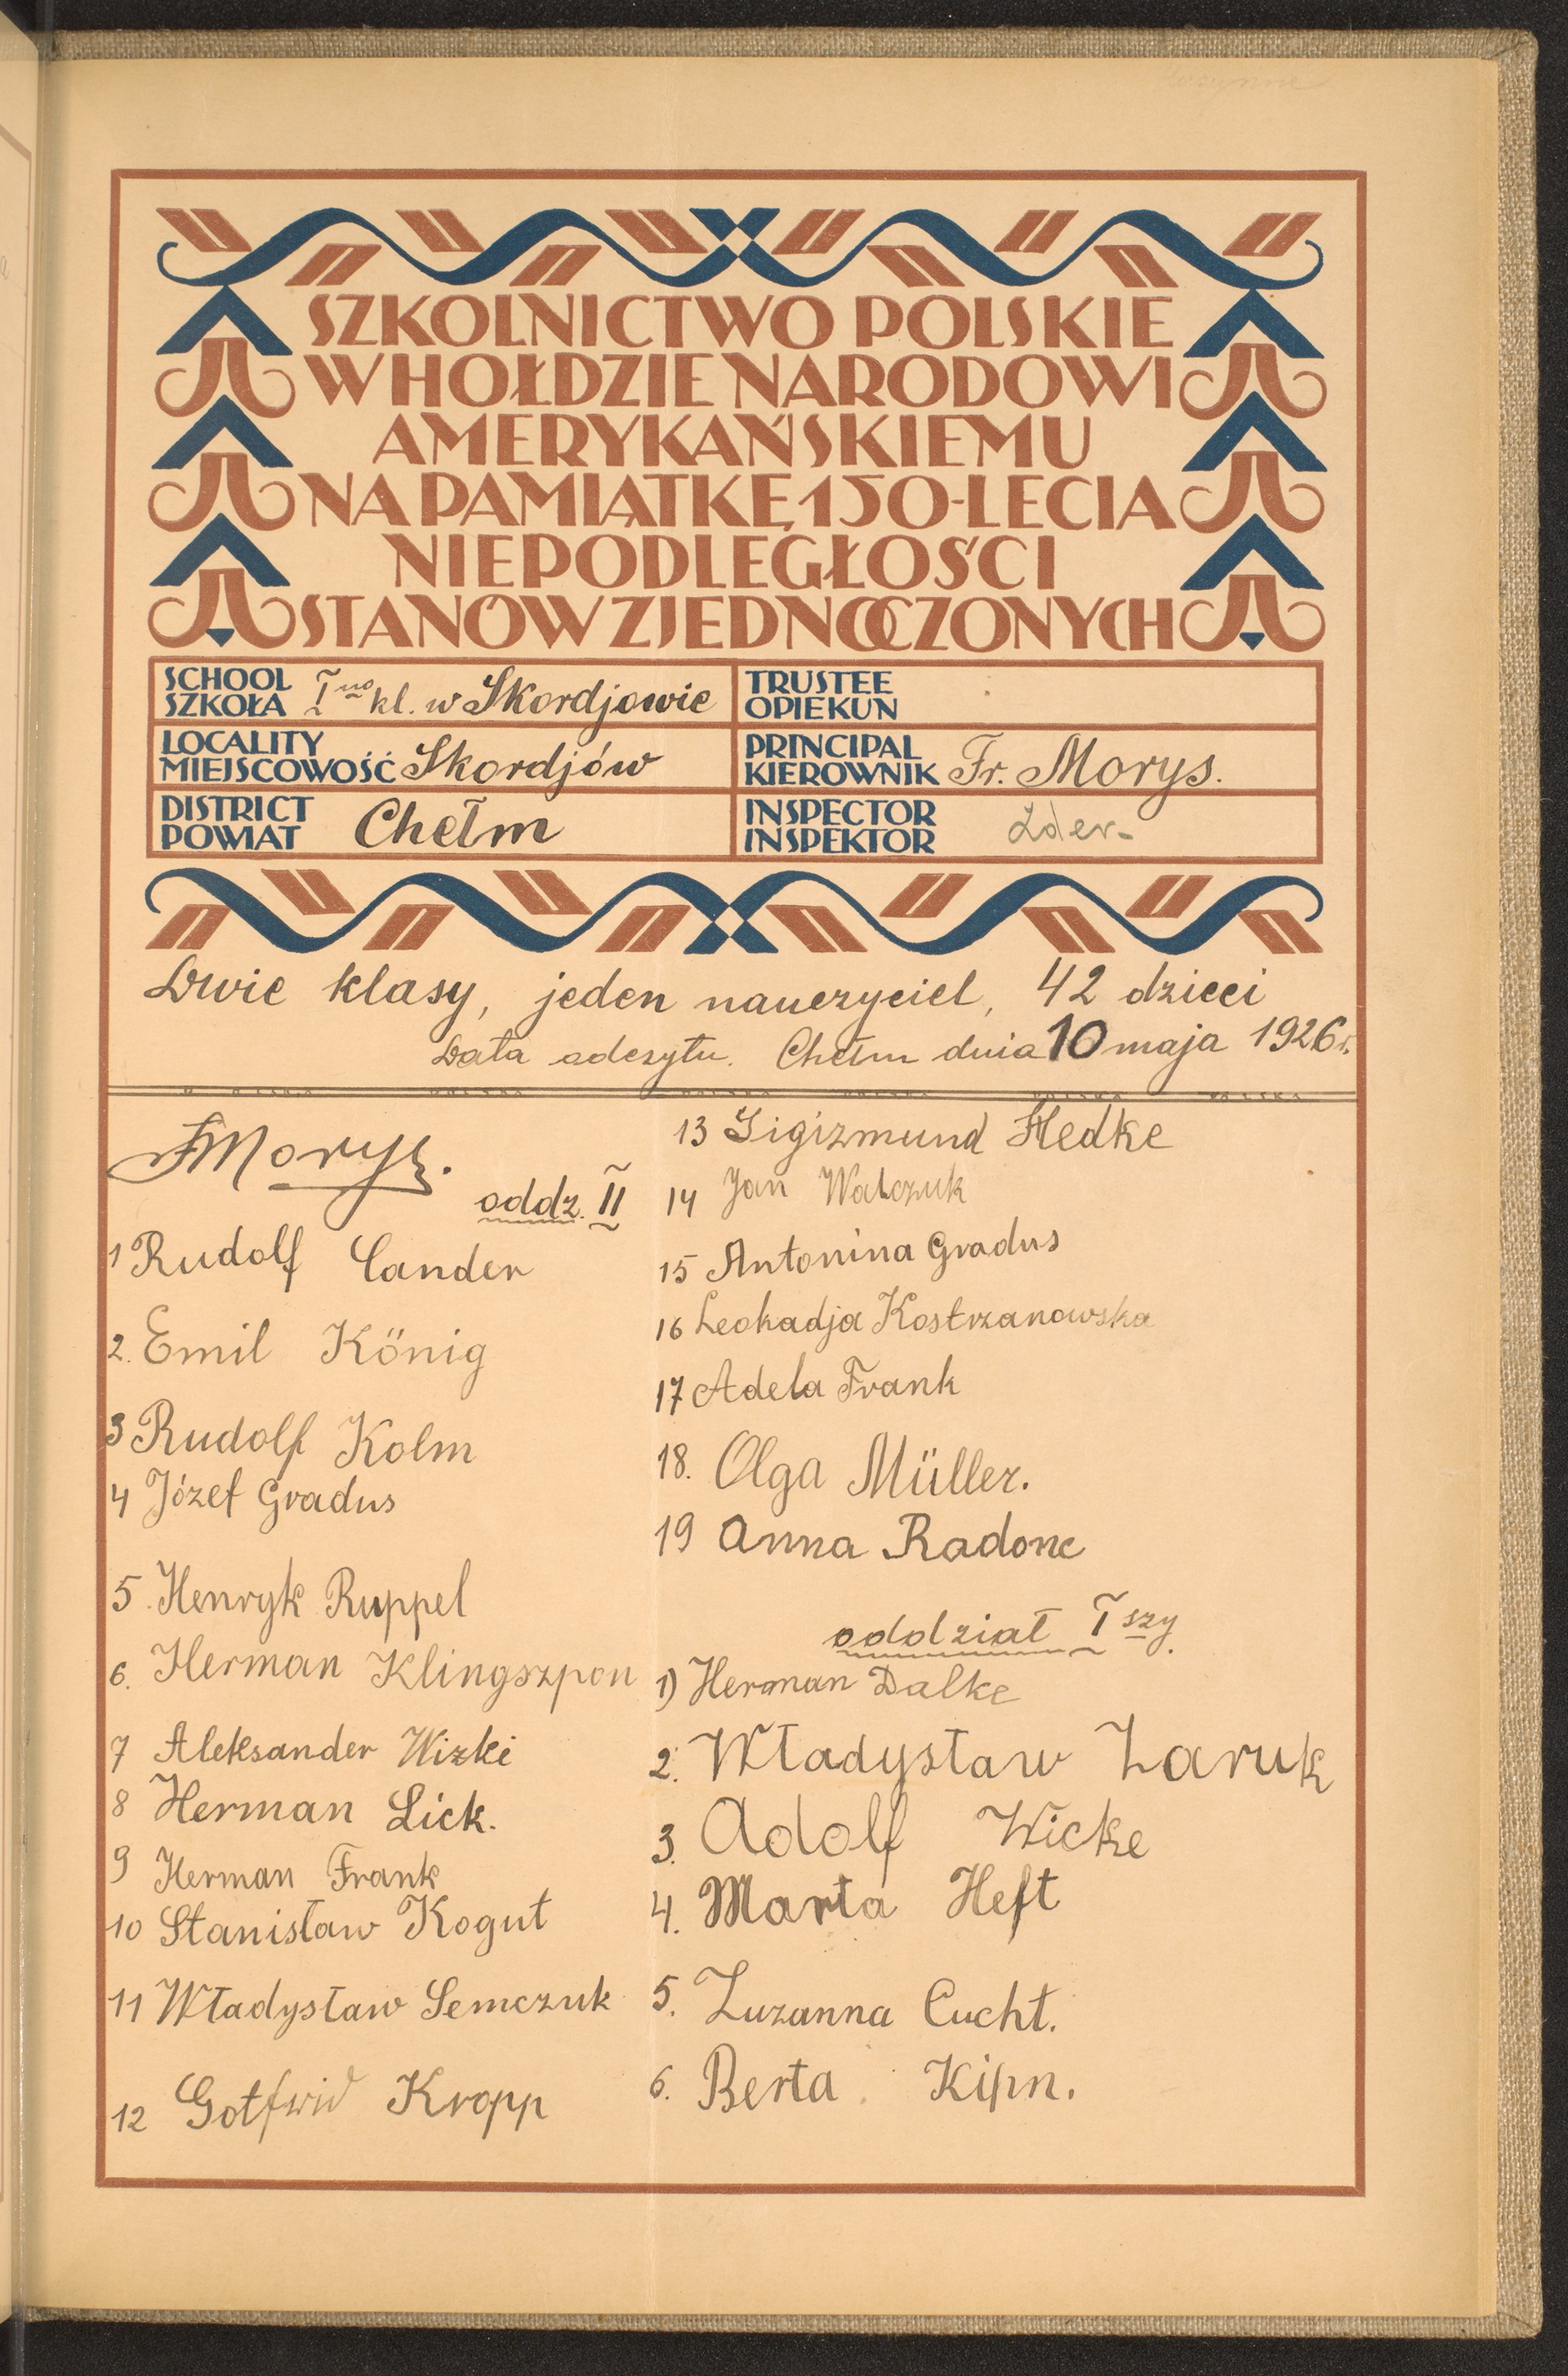 SZKOLNICTWO POLSKIE
W HOŁDZIE NARODOWI
AMERYKAŃSKIEMU
NA PAMIĄTKĘ 150-LECIA
NIEPODLEGŁOŚCI
STANÓW ZJEDNOCZONYCH
SCHOOL
SZKOŁA I no kl. w Skordjowie
TRUSTEE
OPIEKUN
LOCALITY
MIEJSCOWOŚĆ Skordjów
PRINCIPAL
KIEROWNIK Fr. Morys.
DISTRICT
POWIAT Chełm
INSPECTOR
INSPEKTOR
Dwie klasy, jeden nauczyciel, 42 dzieci
Data odczytu. Chełm dnia 10 maja 1926 r.
FMorys.
oddz. II
1 Rudolf Cander
2. Emil König
3 Rudolf Kolm
4 Józef Gradus
5. Henryk Ruppel
6. Herman Klingszpon
7 Aleksander Wizke
8 Herman Lick.
9 Herman Frank
10 Stanisław Kogut
11 Władysław Semczuk
12 Gotfrid Kropp
13 Zigizmund Hedke
14 Jan Walczuk
15 Antonina Gradus
16 Leokadja Kostrzanowska
17 Adela Frank
18. Olga Müller.
19 Anna Radone
oddział I szy.
1) Herman Dalke
2. Władysław Zaruk
3. Adolf Wicke
4. Marta Heft
5. Zuzanna Cucht.
6. Berta Kipn.